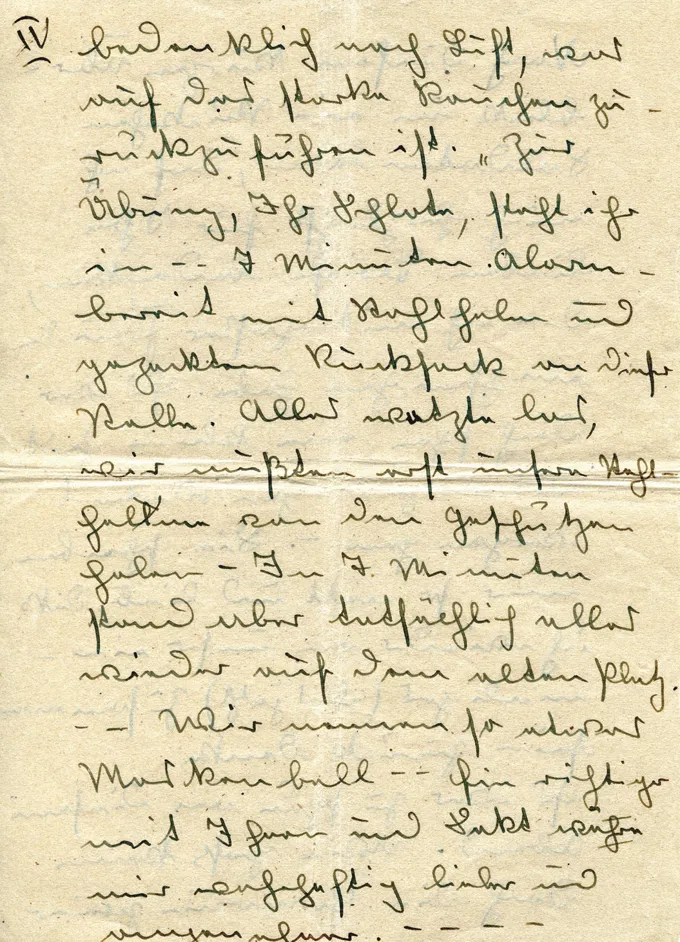 IV
bedenklich nach Luft, was
auf das starke Rauchen zu-
rückzuführen ist. „Zur
Übung, Ihr Schlote, steht ihr
in -- 7 Minuten Alarm-
bereit mit Stahlhelm und
gepacktem Rucksack an dieser
Stelle. Alles wetzte los,
wir mußten erst unsere Stahl-
helme von den Geschützen
holen - In 7 Minuten
stand aber tatsächlich alles
wieder auf dem alten Platz.
-- Wir nennen so etwas
Maskenball -- Ein richtiger
mit Ihnen und Sekt wäre
mir wahrhaftig lieber und
angenehmer. - - - -